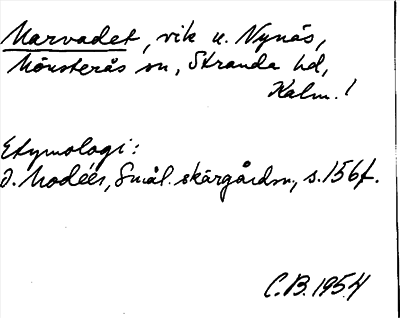 Marvadet, vik u. Nynäs,
Mönsterås sn, Stranda hd,
Kalm. l
Etymologi:
I. Modéer, Smål. skärgårdsn., s. 156f.
C.B. 1954